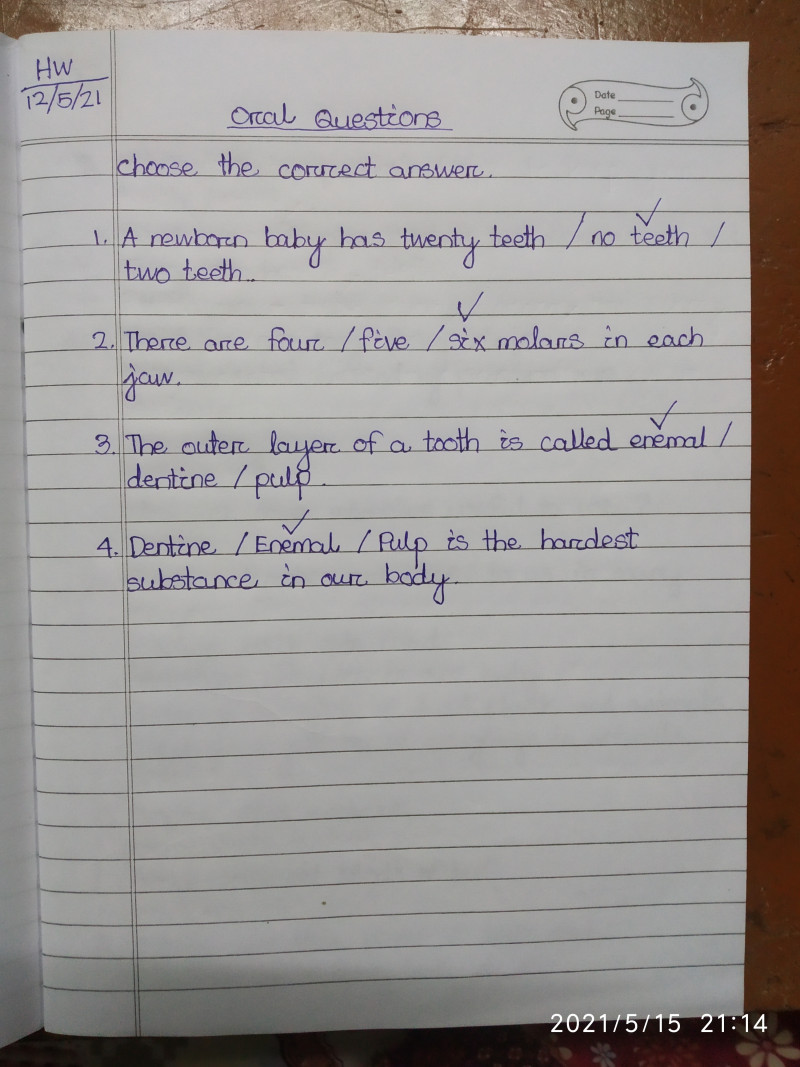 HW
12/5/21
Date
Page
Oral Questions
choose the correct answer.
1. A newborn baby has twenty teeth / no teeth /
two teeth.
2. There are four / five / six molars in each
jaw.
3. The outer layer of a tooth is called enemal /
dentine / pulp.
4. Dentine / Enemal / Pulp is the hardest
substance in our body.
2021/5/15 21:14